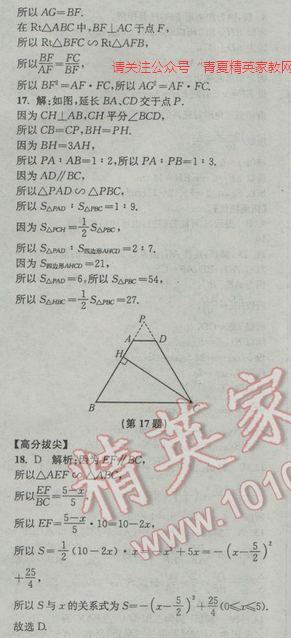 所以 AG=BF.
在 Rt△ABC 中,BF⊥AC 于点 F,
所以 Rt△BFC∽Rt△AFB,
所以 BF/AF=FC/BF,
请关注公众号“青夏精英家教网
所以 BF²=AF·FC,所以 AG²=AF·FC.
17. 解:如图,延长 BA、CD 交于点 P.
因为 CH⊥AB,CH 平分∠BCD,
所以 CB=CP,BH=PH.
因为 BH=3AH,
所以 PA∶AB=1∶2,所以 PA∶PB=1∶3.
因为 AD∥BC,
所以△PAD∽△PBC,
所以 S△PAD∶S△PBC=1∶9.
因为 S△PCH=1/2 S△PBC,
所以 S△PAD∶S四边形AHCD=2∶7.
因为 S四边形AHCD=21,
所以 S△PAD=6,所以 S△PBC=54,
所以 S△HBC=1/2 S△PBC=27.
P
A
D
H
B
(第 17 题)
【高分拔尖】
18. D 解析:因为 EF∥BC,
所以△AEF∽△ABC,
所以 EF/BC=(5-x)/5,
所以 EF=(5-x)/5·10=10-2x,
所以 S=1/2(10-2x)·x=-x²+5x=-(x-5/2)²
+25/4,
所以 S 与 x 的关系式为 S=-(x-5/2)²+25/4(0≤x≤5).
故选 D.
精英家
www.1010